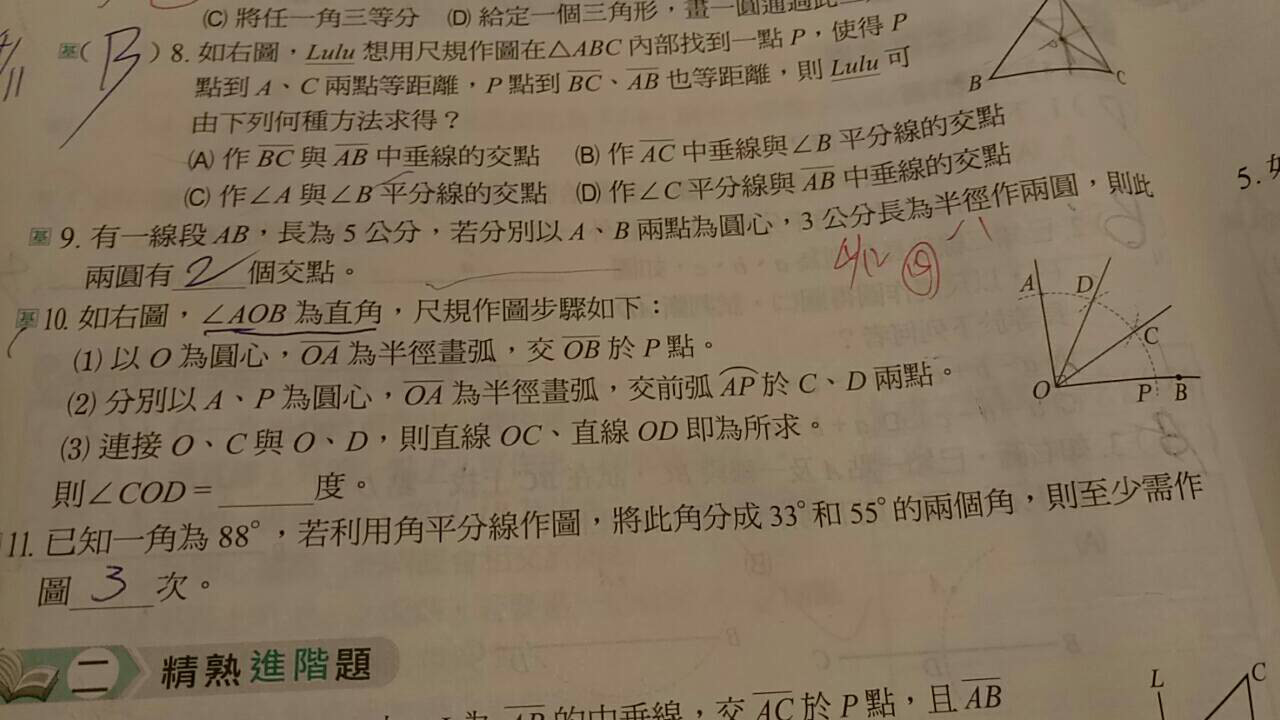 (C) 將任一角三等分 (D) 給定一個三角形，畫一圓通過此三
基 ( B ) 8. 如右圖，Lulu 想用尺規作圖在△ABC 內部找到一點 P，使得 P
點到 A、C 兩點等距離，P 點到 BC、AB 也等距離，則 Lulu 可
由下列何種方法求得？
(A) 作 BC 與 AB 中垂線的交點 (B) 作 AC 中垂線與∠B 平分線的交點
(C) 作∠A 與∠B 平分線的交點 (D) 作∠C 平分線與 AB 中垂線的交點
B C
基 9. 有一線段 AB，長為 5 公分，若分別以 A、B 兩點為圓心，3 公分長為半徑作兩圓，則此
兩圓有 2 個交點。
4/12
基 10. 如右圖，∠AOB 為直角，尺規作圖步驟如下：
(1) 以 O 為圓心，OA 為半徑畫弧，交 OB 於 P 點。
(2) 分別以 A、P 為圓心，OA 為半徑畫弧，交前弧 AP 於 C、D 兩點。
(3) 連接 O、C 與 O、D，則直線 OC、直線 OD 即為所求。
則∠COD = ______ 度。
A D
C
O P B
11. 已知一角為 88°，若利用角平分線作圖，將此角分成 33° 和 55° 的兩個角，則至少需作
圖 3 次。
二 精熟進階題
的中垂線，交 AC 於 P 點，且 AB
L C
5.